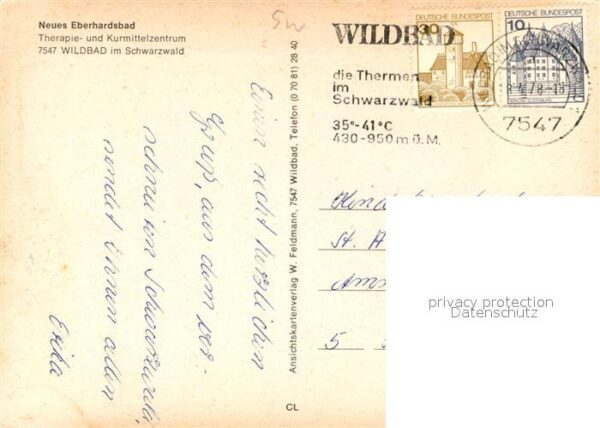 Neues Eberhardsbad
Therapie- und Kurmittelzentrum
7547 WILDBAD im Schwarzwald
Sw
WILDBAD
die Thermen
im
Schwarzwald
35°-41°C
430-950 m ü. M.
DEUTSCHE BUNDESPOST
DEUTSCHE BUNDESPOST
10
7547
Einen recht herzlichen
Gruß, aus dem ver-
schneiten Schwarzwald,
sendet Ihnen allen
Erika
Ansichtskartenverlag W. Feldmann, 7547 Wildbad, Telefon (0 70 81) 28 40
St.
5
CL
privacy protection
Datenschutz